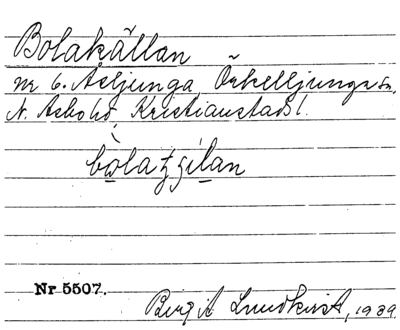 Bolakällan
nr 6. Åsljunga, Örkelljunga sn,
N. Åsbo hd, Kristianstads l.
bòlatʒilan
Nr 5507.
Birgit Lundkvist, 1939